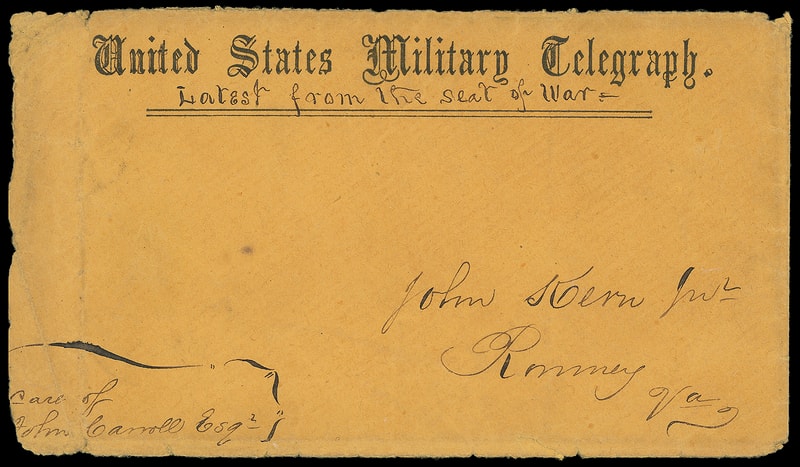 United States Military Telegraph.
Latest from the seat of War=
John Kern Jnr
Romney
Va
care of
John Carroll Esqr